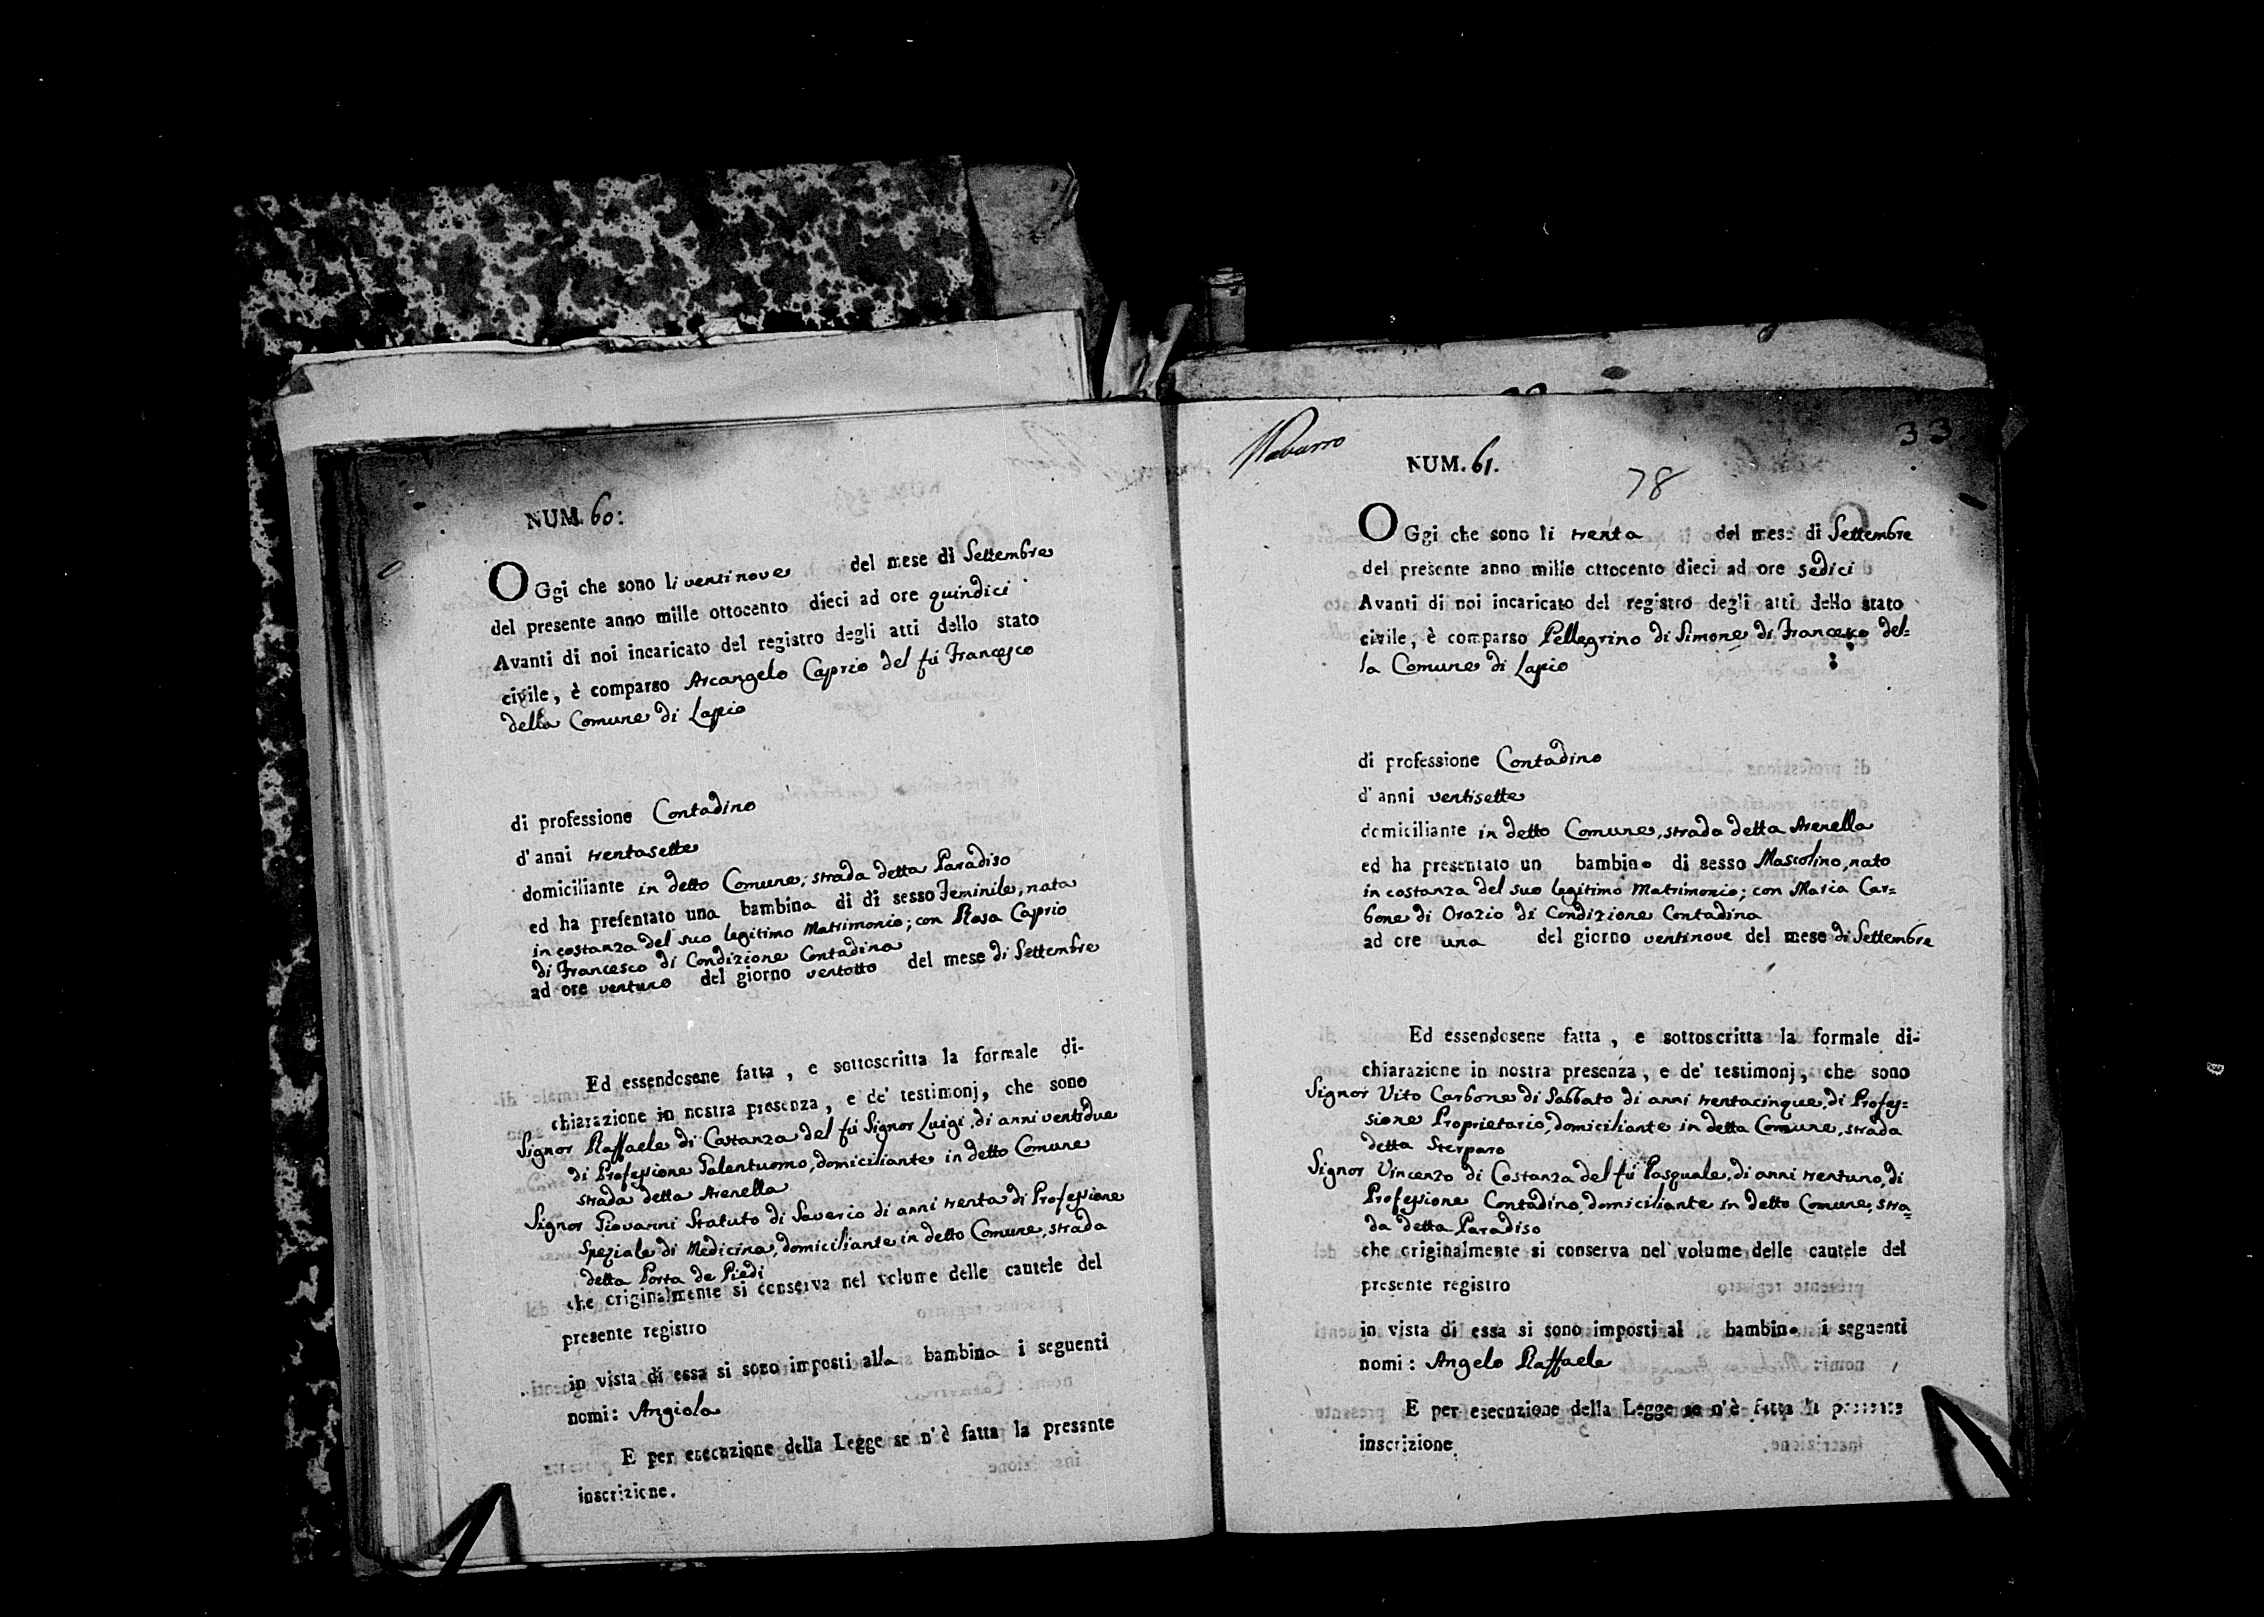 NUM. 60:
OGgi che sono li ventinove del mese di Settembre
del presente anno mille ottocento dieci ad ore quindici
Avanti di noi incaricato del registro degli atti dello stato
civile, è comparso Arcangelo Caprio del fù Francesco
della Comune di Lapio
di professione Contadino
d'anni trentasette
domiciliante in detto Comune, strada detta Paradiso
ed ha presentato una bambina di di sesso Feminile, nata
in costanza del suo legitimo Matrimonio; con Rosa Caprio
di Francesco di Condizione Contadina
ad ore ventuno del giorno ventotto del mese di Settembre
Ed essendosene fatta, e sottoscritta la formale di-
chiarazione in nostra presenza, e de' testimonj, che sono
Signor Raffaele di Costanza del fù Signor Luigi, di anni ventidue
di Professione Galentuomo, domiciliante in detto Comune
strada detta Arenella
Signor Giovanni Statuto di Saverio di anni trenta di Professione
Speziale di Medicina, domiciliante in detto Comune, strada
detta Porta de Piedi
che originalmente si conserva nel volume delle cautele del
presente registro
in vista di essa si sono imposti alla bambina i seguenti
nomi: Angiola
E per esecuzione della Legge se n'è fatta la presente
inscrizione.
Navarro
33
NUM. 61.
78
OGgi che sono li trenta del mese di Settembre
del presente anno mille ottocento dieci ad ore sedici
Avanti di noi incaricato del registro degli atti dello stato
civile, è comparso Pellegrino di Simone di Francesco del=
la Comune di Lapio
di professione Contadino
d'anni ventisette
domiciliante in detto Comune, strada detta Arenella
ed ha presentato un bambino di sesso Mascolino, nato
in costanza del suo legitimo Matrimonio; con Maria Car=
bone di Orazio di Condizione Contadina
ad ore una del giorno ventinove del mese di Settembre
Ed essendosene fatta, e sottoscritta la formale di-
chiarazione in nostra presenza, e de' testimonj, che sono
Signor Vito Carbone di Sabbato di anni trentacinque, di Profes=
sione Proprietario, domiciliante in detta Comune, strada
detta Sterparo
Signor Vincenzo di Costanza del fù Pasquale, di anni trentuno, di
Professione Contadino, domiciliante in detto Comune, stra=
da detta Paradiso
che originalmente si conserva nel volume delle cautele del
presente registro
in vista di essa si sono imposti al bambino i seguenti
nomi: Angelo Raffaele
E per esecuzione della Legge se n'è fatta la presente
inscrizione